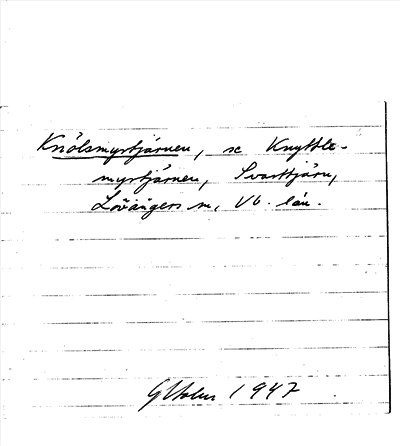 Knölsmyrtjärnen, se Knyttle-
myrtjärnen, Svarttjärn,
Lövångers sn, Vb. län.
GHolm 1947